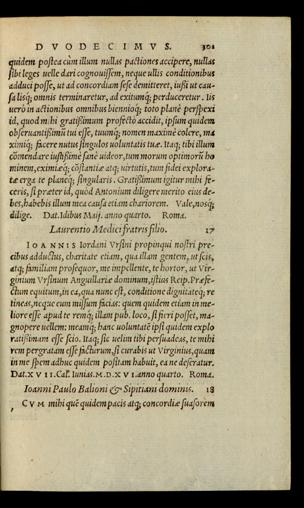 DVODECIMVS. 302
quidem postea cùm illum nullas pactiones accipere, nullas
sibi leges uelle dari cognouissem, neque ullis conditionibus
adduci posse, ut ad concordiam sese demitteret, iusli ut cau-
sa lisq́; omnis terminaretur, ad exitumq́; perduceretur. Iis
uerò in actionibus omnibus bienniòq́; toto planè perspexi
id, quod mihi gratißimum profectò accidit, ipsum quidem
obseruantißimũ tui esse, tuumq́; nomen maximè colere, ma
ximiq́; facere nutus singulos voluntatis tuæ. Itaq; tibi illum
cõmendare iustißimè sanè uideor, tum morum optimorũ ho
minem, eximiæq́; cõstantiæ atq; uirtutis, tum fidei explora-
tæ erga te planeq́; singularis. Gratißimum igitur mihi fe-
ceris, si præter id, quòd Antonium diligere meritò eius de-
bes, habebis illum mea causa etiam chariorem. Vale, nosq́;
dilige. Dat. Idibus Maij. anno quarto. Roma.
Laurentio Medici fratris filio. 17
IOANNIS Iordani Vrsini propinqui nostri pre-
cibus adductus, charitate etiam, qua illam gentem, ut scis,
atq; familiam prosequor, me impellente, te hortor, ut Vir-
ginium Vrsinum Anguillariæ dominum, istius Reip. Præfe-
ctum equitum, in ea, qua nunc est, conditione dignitateq́; re
tineas, neque eum missum facias: quem quidem etiam in me-
liore esse apud te remq́; illam pub. loco, si fieri posset, ma-
gnopere uellem: meamq́; hanc uoluntatẽ ipsi quidem explo
ratißimam esse scio. Itaq; sic uelim tibi persuadeas, te mihi
rem pergratam esse facturum, si curabis ut Virginius, quam
in me spem adhuc quidem positam habuit, ea ne deseratur.
Dat. XVII. Cal. Iunias. M.D.XVI. anno quarto. Roma.
Ioanni Paulo Balioni & Sipitiani dominis. 18
CVM mihi quẽ quidem pacis atq; concordiæ suasorem